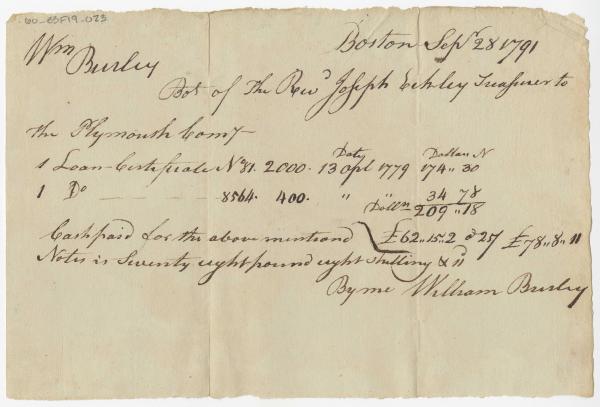 60-85F19-023
Boston Sepr. 28 1791
Wm Burley
Bot of The Revd Joseph Eckley Treasurer to
the Plymouth Comy
Daty Dollars N
1 Loan-Certificate No 81. 2000. 13 Apl 1779 174 " 30
1 Do 8564. 400. " " 34 78
Dollrs 209 " 18
Cash paid for the above mentiond £62 " 15 " 2 £78 " 8 " 11
Notes is Seventy eight pound eight shilling & 11d
By me William Burley